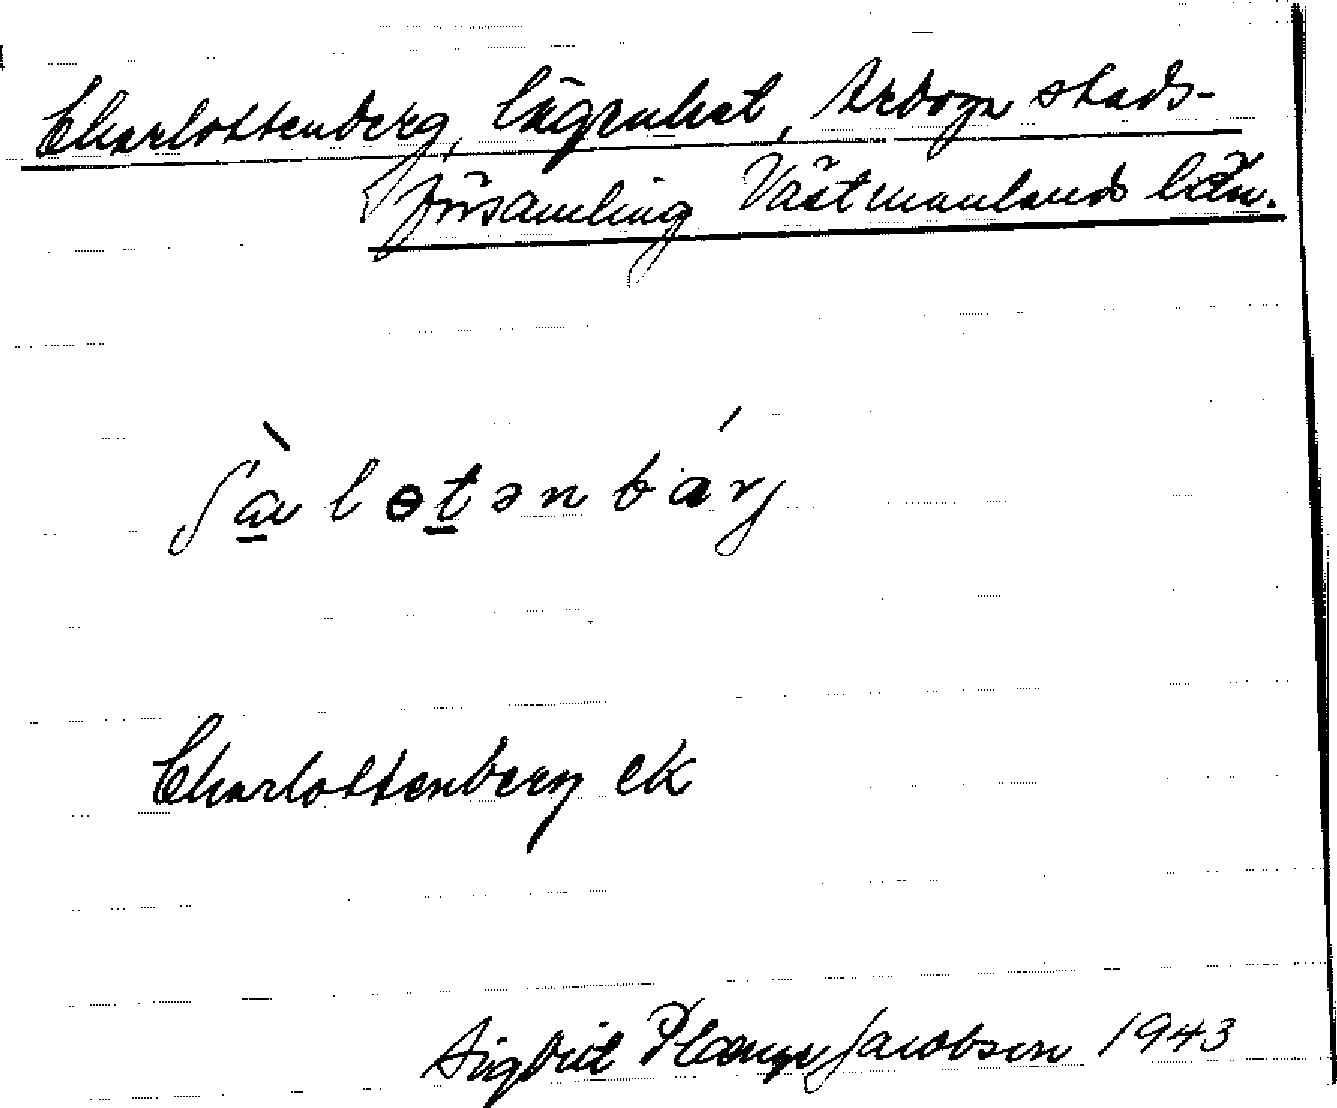 Charlottenberg, lägenhet, Arboga stads-
församling Västmanlands län.
ʃàlɵtənbárj
Charlottenberg ek
Sigbrit Plænge Jacobson 1943